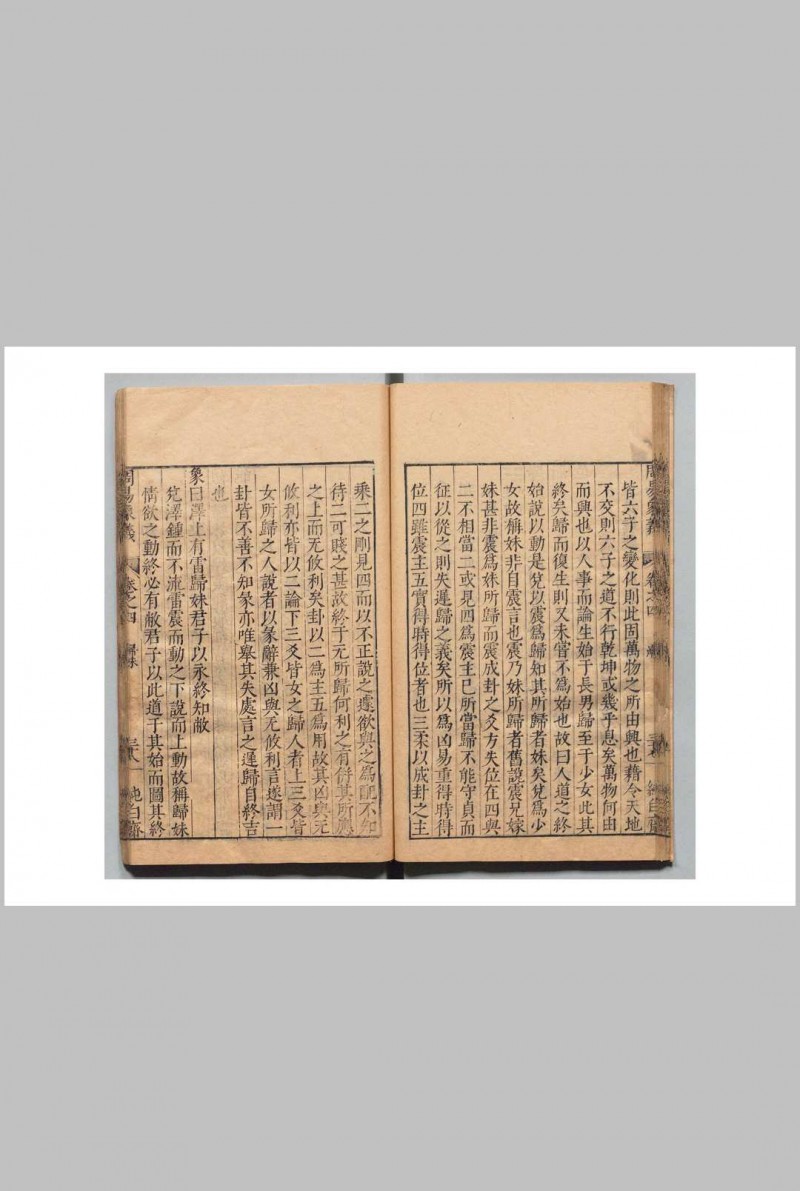 皆六子之變化則此固萬物之所由興也藉令天地
不交則六子之道不行乾坤或幾乎息矣萬物何由
而興也以人事而論生始于長男歸至于少女此其
終矣歸而復生則又未嘗不為始也故曰人道之終
始說以動是兌以震為歸知其所歸者妹矣兌為少
女故稱妹非自震言也震乃妹所歸者舊說震兄嫁
妹甚非震為妹所歸而震成卦之爻方失位在四與
二不相當二或見四為震主已所當歸不能守貞而
征以從之則失遲歸之義矣所以為凶易重得時得
位四雖震主五實得時得位者也三柔以成卦之主
乘二之剛見四而以不正說之遽欲與之為配不知
待二可賤之甚故終于无所歸何利之有併其所應
之上而无攸利矣卦以二為主五為用故其凶與无
攸利亦皆以二論下三爻皆女之歸人者上三爻皆
女所歸之人說者以彖辭兼凶與无攸利言遂謂一
卦皆不善不知彖亦唯舉其失處言之遲歸自終吉
也
象曰澤上有雷歸妹君子以永終知敝
兌澤鍾而不流雷震而動之下說而上動故稱歸妹
情欲之動終必有敝君子以此道于其始而圖其終
周易象義
卷之四
歸妹
純白齋